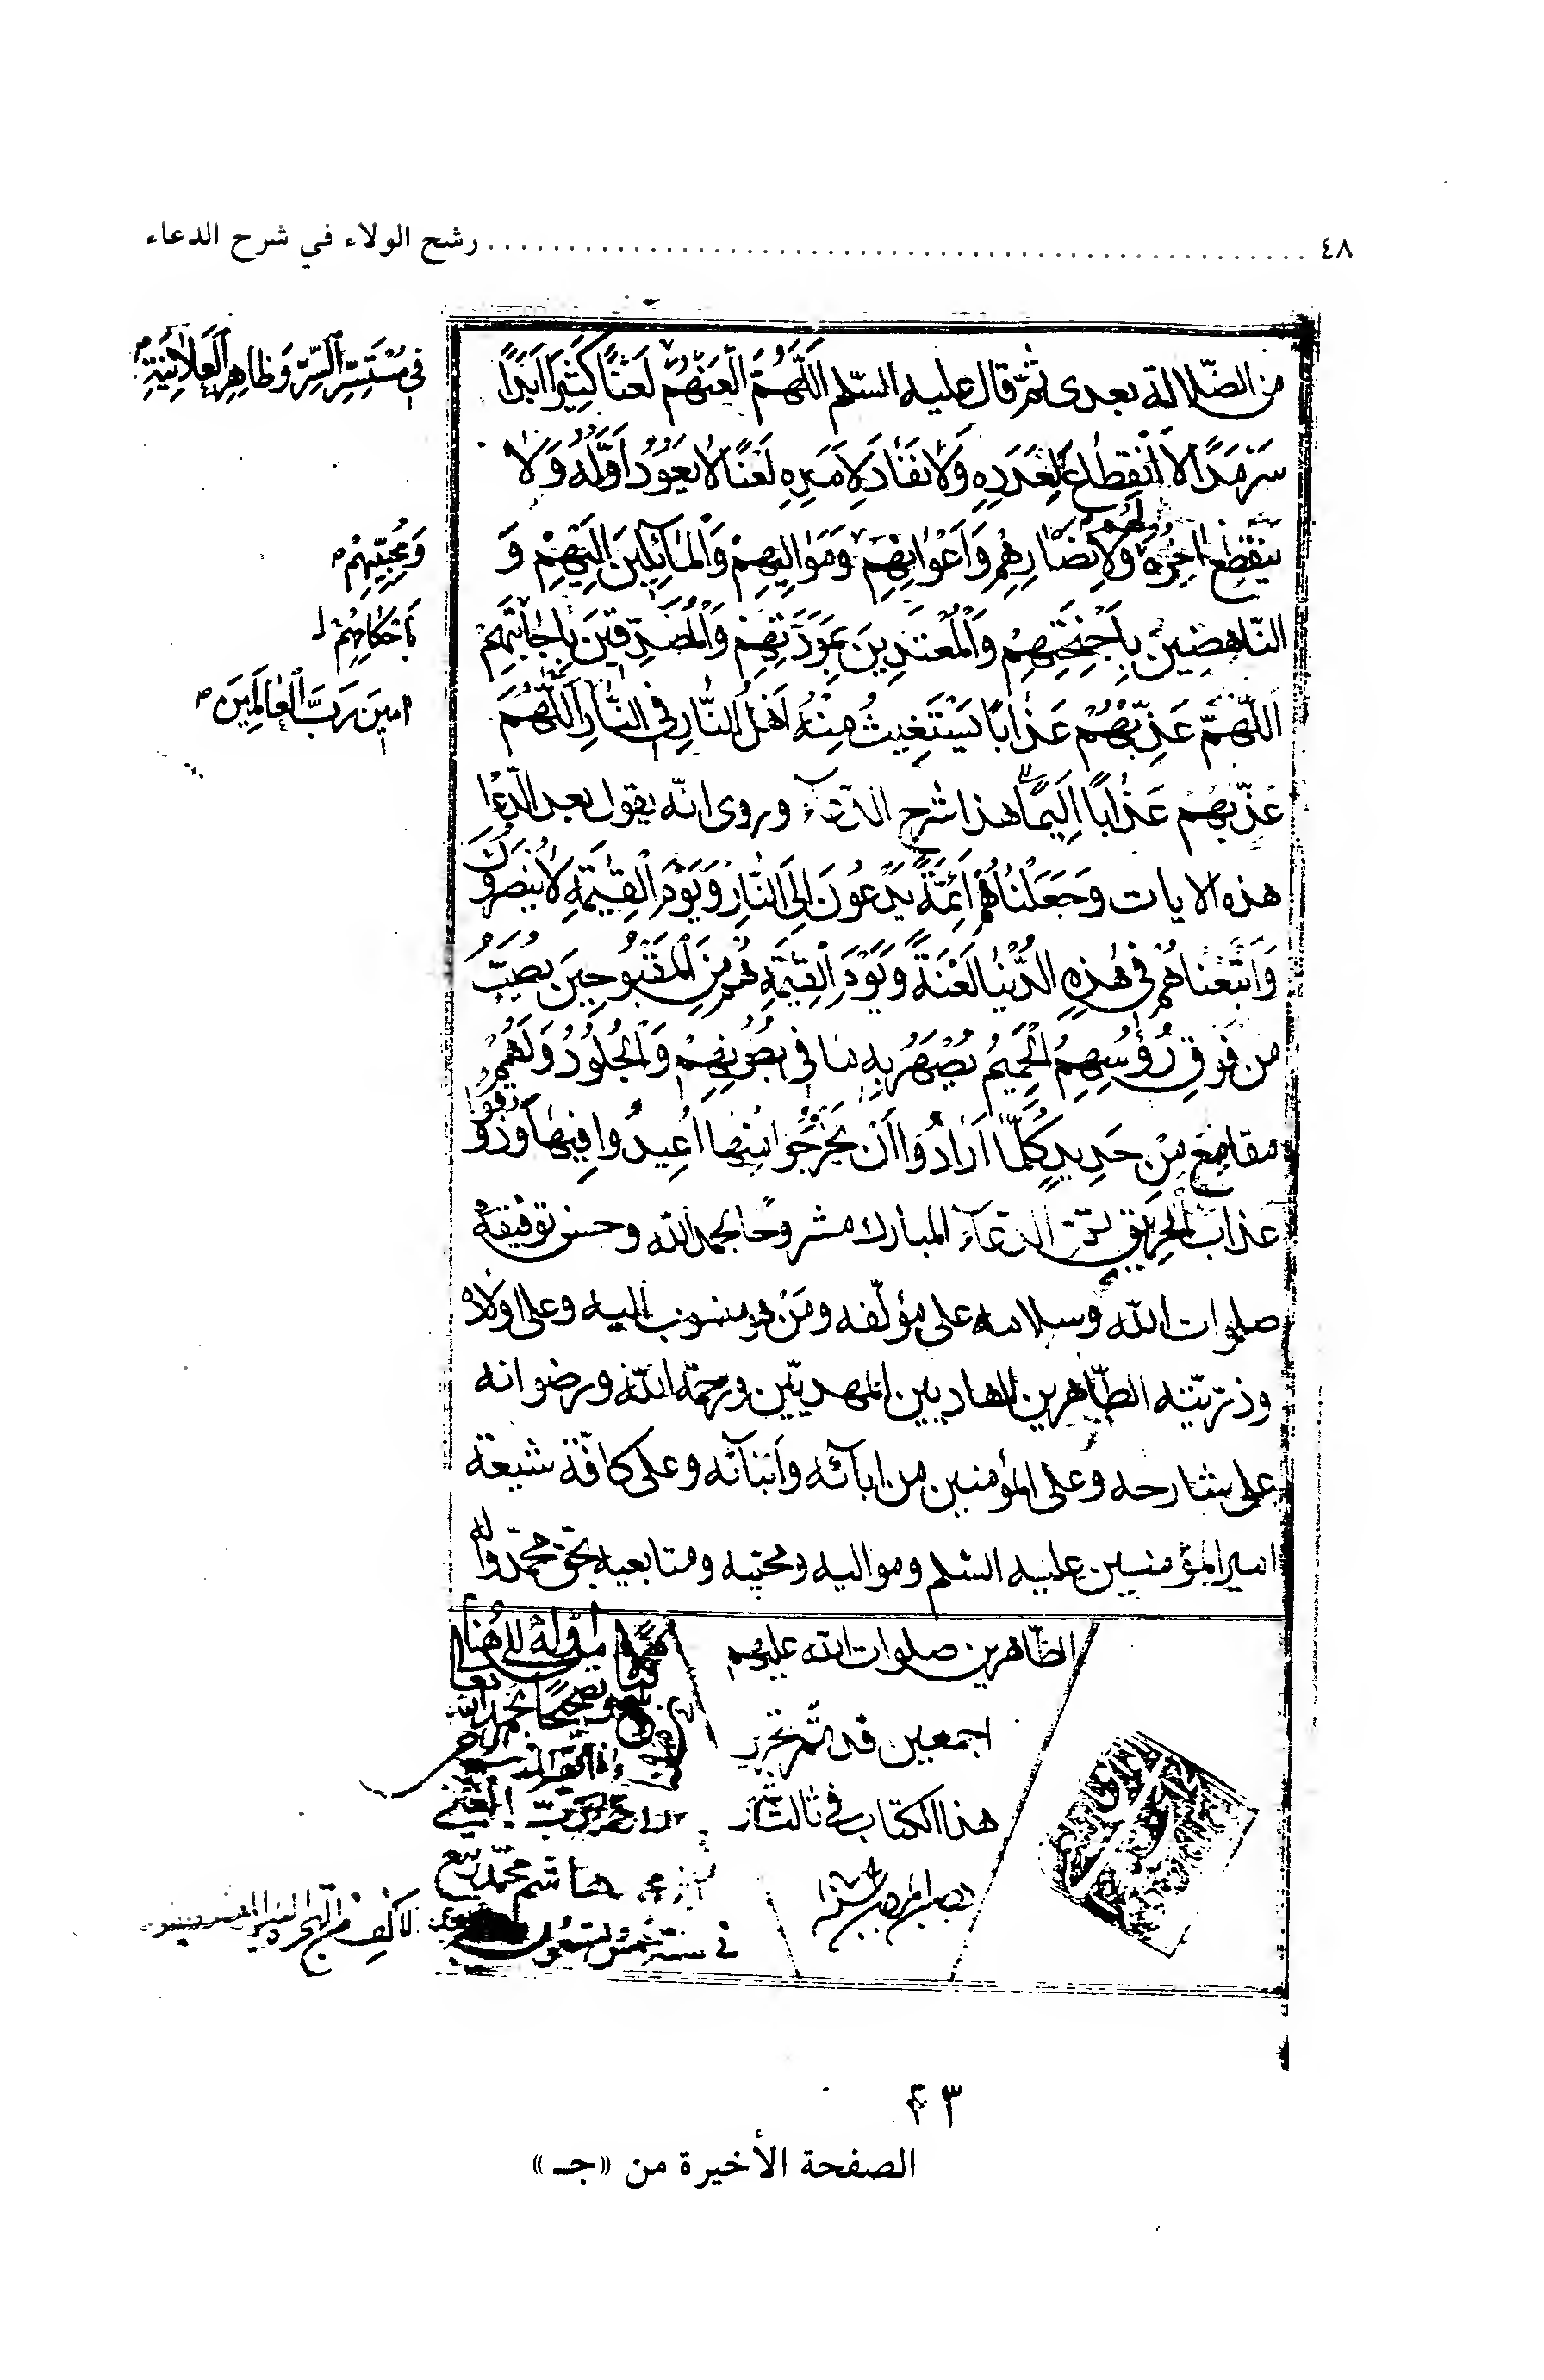 ٤٨ ........ رشح الولاء في شرح الدعاء
من الضّلالة بعدى ثمّ قال عليه السّلم اَللّهُمَّ الْعَنْهُمْ لَعْنًا كَثِيرًا اَبَدًا
في مُسْتَسِرِّ السِّرِّ وَظاهِرِ الْعَلانِيَةِ
سَرْمَدًا لاَ انْقِطاعَ لِعَدَدِهِ وَلاٰ نَفَادَ لِاَمَدِهِ لَعْنًا لاٰ يَعُودُ اَوَّلُهُ وَلاٰ
يَنْقَطِعُ اخِرُهُ لَهُمْ وَلِاَنْصَارِهِمْ وَاَعْوٰانِهِمْ وَمَوٰالِيهِمْ وَالْمٰآئِلِينَ اِلَيْهِمْ وَ
وَمُحِبِّيهِمْ
النّاهِضِينَ بِاَجْنِحَتِهِمْ وَالْمُعْتَدِينَ بِمَوَدَّتِهِمْ وَالْمُصَدِّقِينَ بِاِجٰابَتِهِمْ
بَاَحْكامِهِمْ
اَللّهُمَّ عَذِّبْهُمْ عَذٰابًا يَسْتَغِيثُ مِنْهُ اَهْلُ النّٰارِ فِى النّٰارِ اَللّٰهُمَّ
امِينَ رَبَّ الْعٰالَمِينَ
عَذِّبْهُمْ عَذٰابًا اَلِيمًا هذا شرح الدّعآء وروى انّه يقول بعد الدّعا
هذه الايات وَجَعَلْنٰاهُمْ اَئِمَّةً يَدْعُونَ اِلَى النّٰارِ وَيَوْمَ الْقِيٰمَةِ لاٰ يُنْصَرُونَ
وَاَتْبَعْناهُمْ فى هٰذِهِ الدُّنْيٰا لَعْنَةً وَيَوْمَ الْقِيٰمَةِ هُمْ مِنَ الْمَقْبُوحِينَ يُصَبُّ
من فَوْقِ رُؤُسِهِمُ الْحَمِيمُ يُصْهَرُ بِهِ مٰا فى بُطُونِهِمْ وَالْجُلُودُ وَلَهُمْ
مقامِعُ مِنْ حَدِيدٍ كُلَّمٰا اَرٰادُوا اَنْ يَخْرُجُوا مِنْها اُعِيدُوا فِيهٰا وَذُوقُوا
عذابَ الْحَرِيقِ تمّت الدّعآء المبارك مشروحًا بحمد الله وحسن توفيقه
صلوات الله وسلامه على مؤلّفه ومَنْ هو منسوب اليه وعلى اولاده
وذرّيّته الطّاهرين الهاديين المهديّين ورحمة الله ورضوانه
على شارحه وعلى المؤمنين من ابآئه وَاَبنآئه وعلى كافّة شيعة
امير المؤمنين عليه السّلم ومواليه ومحبّيه ومتابعيه بحقّ محمّد واله
الطّاهرين صلوات الله عليهم
اجمعين قد تمّ تحرير
هذا الكتاب فى ثالث
هاشم محمّد
فى سنة خمس تسعون
٤٣
الصفحة الأخيرة من «جـ»